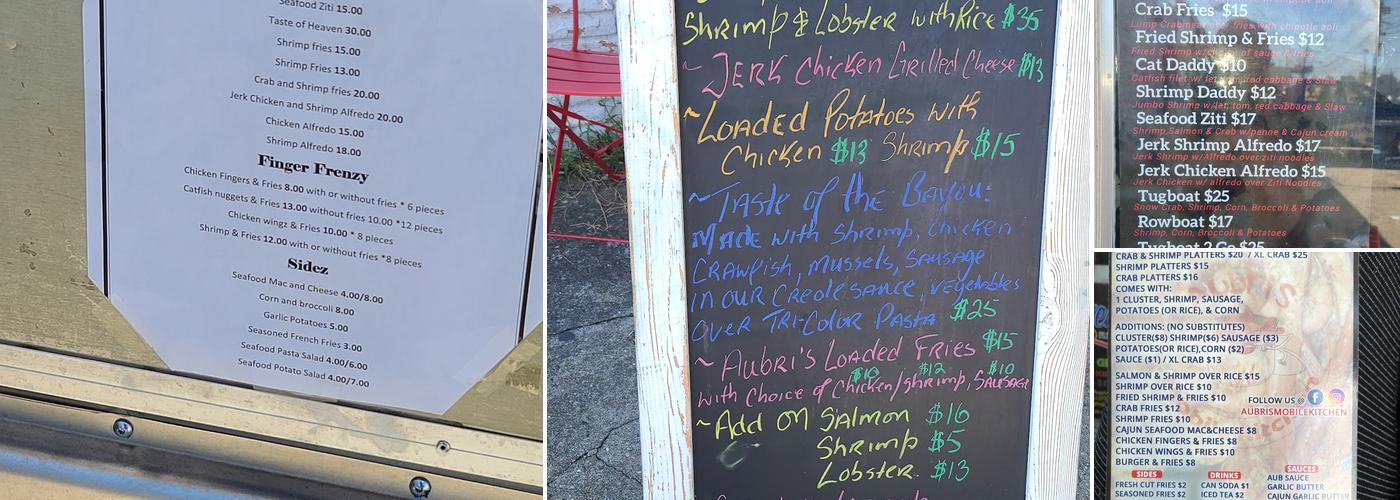 Seafood Ziti 15.00
Taste of Heaven 30.00
Shrimp fries 15.00
Shrimp Fries 13.00
Crab and Shrimp fries 20.00
Jerk Chicken and Shrimp Alfredo 20.00
Chicken Alfredo 15.00
Shrimp Alfredo 18.00
Finger Frenzy
Chicken Fingers & Fries 8.00 with or without fries * 6 pieces
Catfish nuggets & Fries 13.00 without fries 10.00 *12 pieces
Chicken wingz & Fries 10.00 * 8 pieces
Shrimp & Fries 12.00 with or without fries *8 pieces
Sidez
Seafood Mac and Cheese 4.00/8.00
Corn and broccoli 8.00
Garlic Potatoes 5.00
Seasoned French Fries 3.00
Seafood Pasta Salad 4.00/6.00
Seafood Potato Salad 4.00/7.00
Shrimp & Lobster with Rice $35
~ Jerk Chicken Grilled Cheese $13
~ Loaded Potatoes with
Chicken $13 Shrimp $15
~ Taste of the Bayou:
Made with Shrimp, Chicken
Crawfish, Mussels, Sausage
in our Creole Sauce, vegetables
over Tri-Color Pasta $25
~ Aubri's Loaded Fries $15
$10 $12 $10
with Choice of Chicken/Shrimp, Sausage
~ Add on Salmon $16
Shrimp $5
Lobster $13
Crab Fries $15
Lump Crabmeat over fries with chipotle aoli
Fried Shrimp & Fries $12
Fried Shrimp w/choice of sauce & fries
Cat Daddy $10
Catfish filet w/ let, tom, red cabbage & Slaw
Shrimp Daddy $12
Jumbo Shrimp w/let, tom, red cabbage & Slaw
Seafood Ziti $17
Shrimp,Salmon & Crab w/penne & Cajun cream
Jerk Shrimp Alfredo $17
Jerk Shrimp w/Alfredo over ziti noodles
Jerk Chicken Alfredo $15
Jerk Chicken w/ alfredo over Ziti Noodles
Tugboat $25
Snow Crab, Shrimp, Corn, Broccoli & Potatoes
Rowboat $17
Shrimp, Corn, Broccoli & Potatoes
Tugboat 2 Go $25
CRAB & SHRIMP PLATTERS $20 / XL CRAB $25
SHRIMP PLATTERS $15
CRAB PLATTERS $16
COMES WITH:
1 CLUSTER, SHRIMP, SAUSAGE,
POTATOES (OR RICE), & CORN
ADDITIONS: (NO SUBSTITUTES)
CLUSTER($8) SHRIMP($6) SAUSAGE ($3)
POTATOES(OR RICE),CORN ($2)
SAUCE ($1) / XL CRAB $13
SALMON & SHRIMP OVER RICE $15
SHRIMP OVER RICE $10
FRIED SHRIMP & FRIES $10
CRAB FRIES $12
SHRIMP FRIES $10
CAJUN SEAFOOD MAC&CHEESE $8
CHICKEN FINGERS & FRIES $8
CHICKEN WINGS & FRIES $10
BURGER & FRIES $8
FOLLOW US @
AUBRISMOBILEKITCHEN
SIDES
FRESH CUT FRIES $2
SEASONED FRIES $2
DRINKS
CAN SODA $1
ICED TEA $2
SAUCES
AUB SAUCE
GARLIC BUTTER
CAJUN GARLIC BUTTER